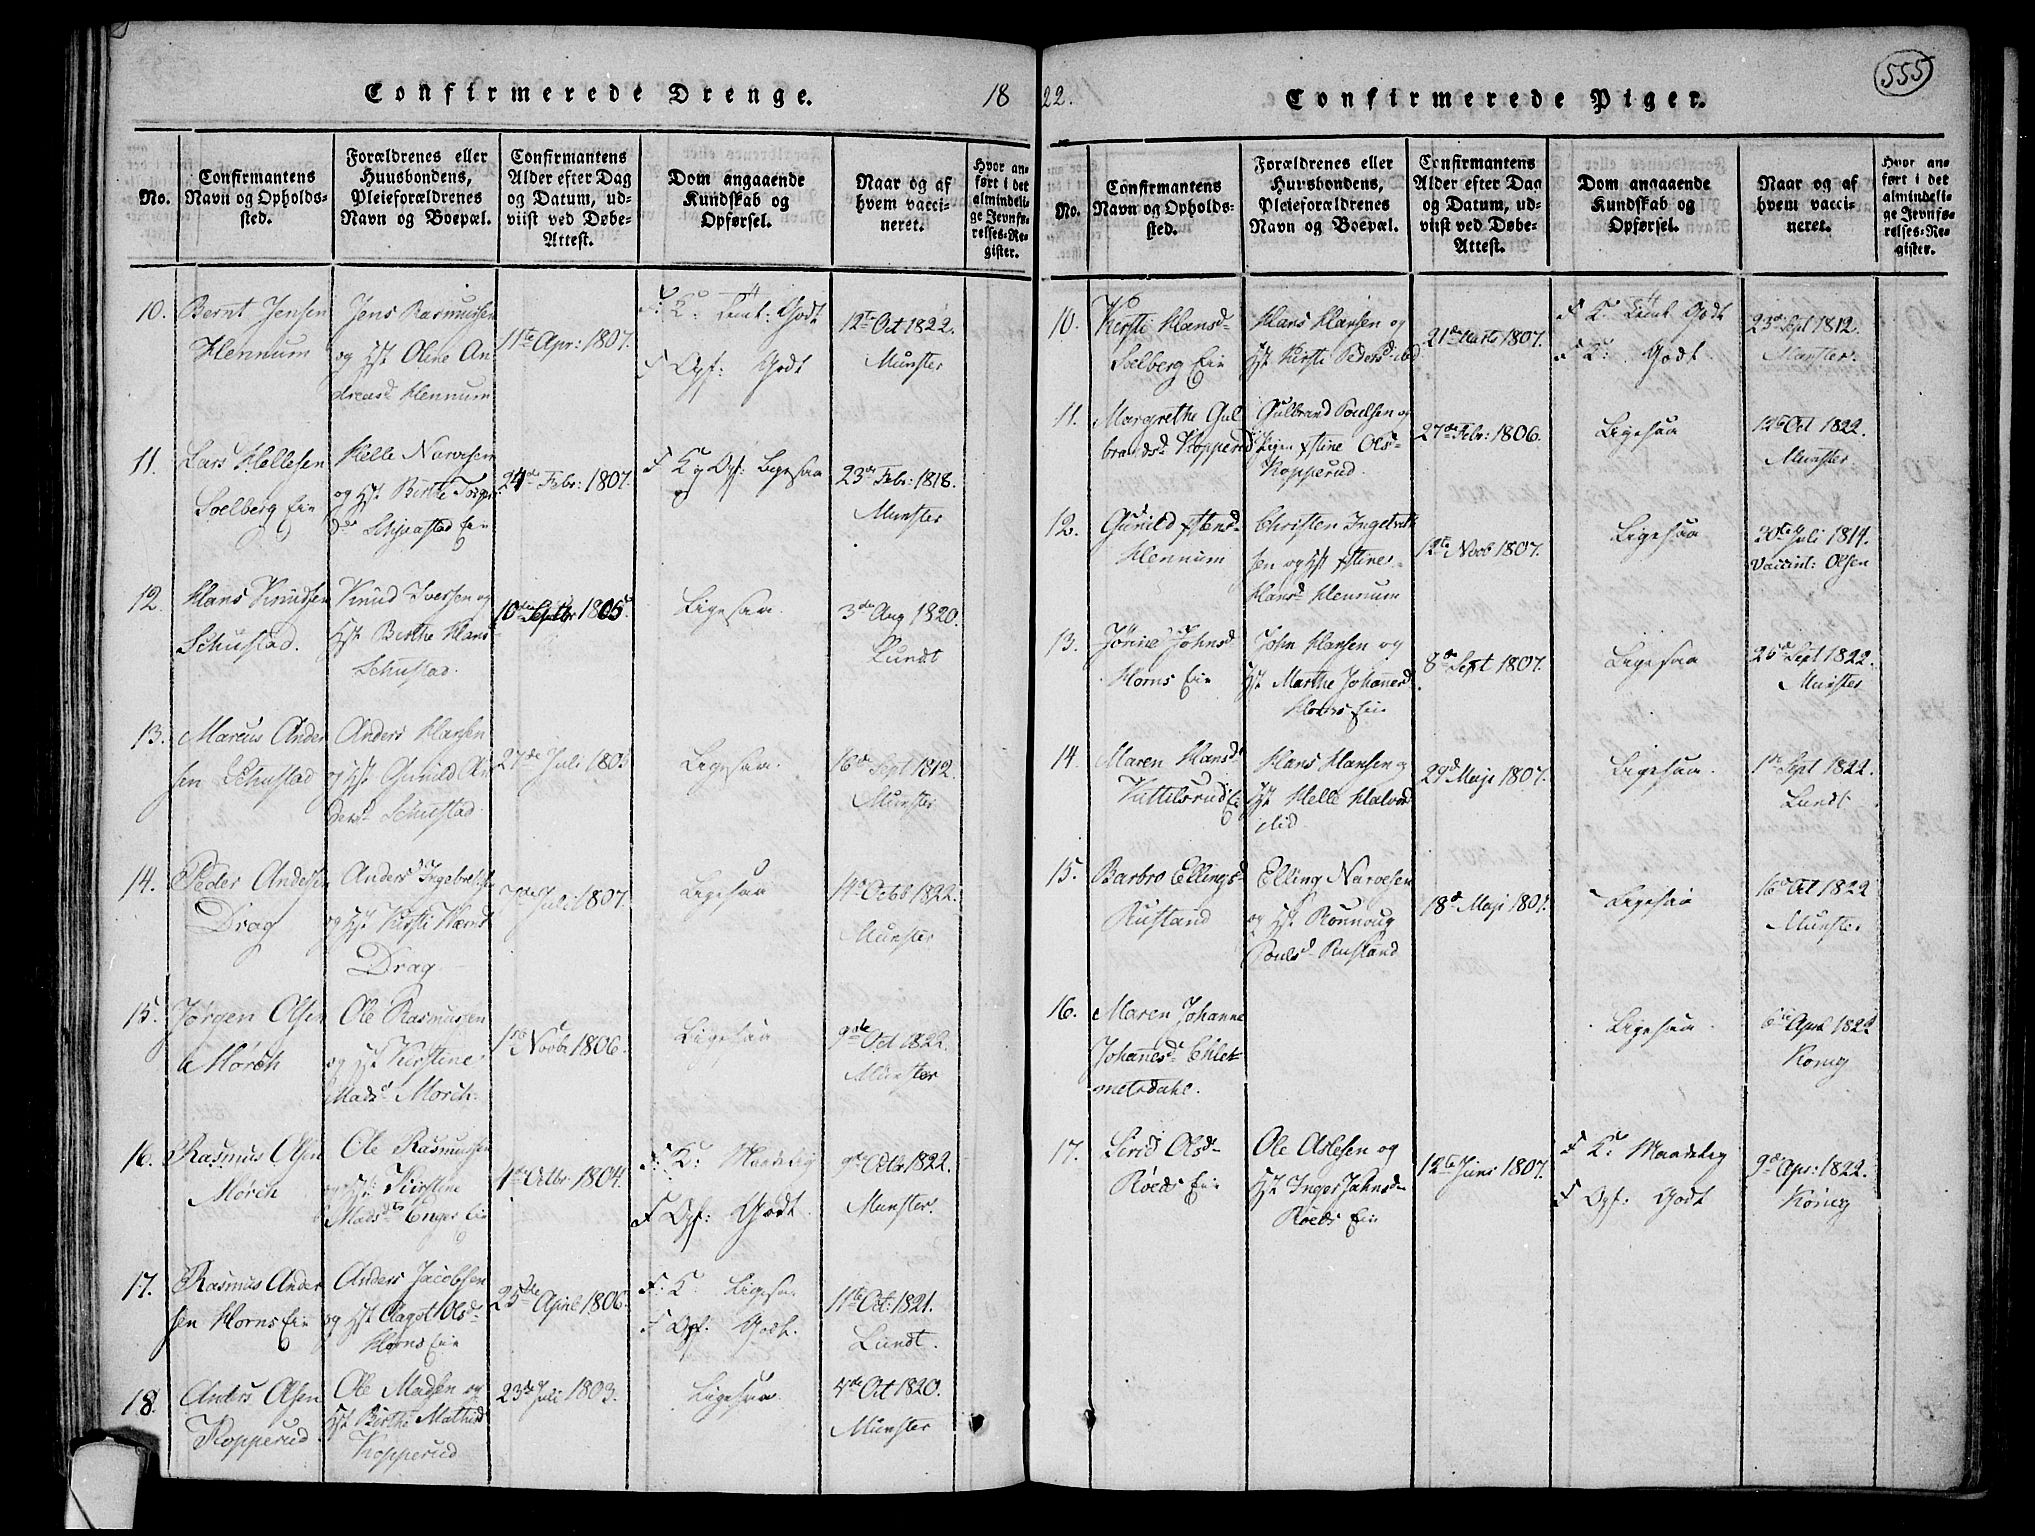 Confirmerede Drenge.
18
No.
Confirmantens
Navn og Opholds-
sted.
Forældrenes eller
Huusbondens,
Pleieforældrenes
Navn og Boepæl.
Confirmantens
Alder efter Dag
og Datum, ud-
viist ved Døbe-
Attest.
Dom angaaende
Kundskab og
Opførsel.
Naar og af
hvem vacci-
neret.
Hvor an-
ført i det
almindeli-
ge Jevnfø-
relses-Re-
gister.
10.
Bernt Jensen
Hennum
Jens Rasmussen
og Hst Oline An
dreasd Hennum
11te Apr: 1807.
F. K: Godt
F Opf: Godt
12te Oct 1822.
Munster
11.
Lars Hellesen
Solberg Eie
Helle Narvesen
og Hst Birthe
Eie
24de Febr: 1807.
F K og Opf: Ligesaa
23de Febr: 1818.
Munster
12.
Hans Knudsen
Schustad.
Knud Iversen og
Hst Birthe Hans
Schustad.
10de 1805
Ligesaa.
3de Aug 1820.
Lundt
13.
Marcus Ander
sen Schustad
Anders Hansen
og Hst Gunild An
dersd Schustad
27de Juli 1805
Ligesaa.
16de Sept 1812
Munster
14.
Peder Andersen
Drag
Anders Ingebretsen
og Hst Kirsti
Drag
7de Juli 1807.
Ligesaa
14de Octob 1822.
Munster
15.
Jørgen Olsen
Mørch
Ole Rasmussen
og Hst Kirstine
Madsd Mørch.
1ste Novbr 1806.
Ligesaa
9de Oct 1822.
Munster
16.
Rasmus Olsen
Mørch
Ole Rasmussen
og Hst: Kirstine
Madsd Enger Eie
1de Octbr. 1804.
F. K: Maadelig
F Opf: Godt.
9de Octbr. 1822.
Munster.
17.
Rasmus Ander
sen Horns Eie
Anders Jacobsen
og Hst Aagot Olsd
Horns Eie
25de April 1806.
F: K: Ligesaa
F Opf. Godt.
11te Oct: 1821.
Lundt.
18.
Anders Olsen
Kopperud.
Ole Madsen og
Hst Birthe Mathisd
Kopperud
23de Juli 1803.
Ligesaa.
4de Oct 1820.
Munster
22.
Confirmerede Piger.
555
No.
Confirmantens
Navn og Opholds-
sted.
Forældrenes eller
Huusbondens,
Pleieforældrenes
Navn og Boepæl.
Confirmantens
Alder efter Dag
og Datum, ud-
viist ved Døbe-
Attest.
Dom angaaende
Kundskab og
Opførsel.
Naar og af
hvem vacci-
neret.
Hvor an-
ført i det
almindeli-
ge Jevnfø-
relses-Re-
gister.
10.
Kirsti Hansd
Solberg Eie
Hans Hansen og
Hst Kirsti Pedersd ibid
21de Marts 1807.
F K: Godt
F K: Godt
23de Sept 1812.
Munster.
11.
Margrethe Gul
brandsd Kopperud
Gulbrand Poulsen og
Pigen Stine Olsd
Kopperud.
27de Febr: 1806.
Ligesaa
12te Oct 1822.
Munster
12.
Gunild
Hennum
Christen Ingebreth
sen og Hst Stine
Hansd Hennum
12te Novb 1807.
Ligesaa
30te Juli 1814.
Vaccint: Olsen
13.
Jørine Johnsd
Horns Eie
John Hansen og
Hst Marthe Johannesd
Horns Eie
8de Sept 1807.
Ligesaa
25de Sept 1822.
Munster
14.
Maren Hansd
Kittilsrud Eie
Hans Hansen og
Hst Helle Halvorsd
ibid.
29d Maji 1807.
Ligesaa.
1ste Sept 1822.
Lundt.
15.
Barbro Ellingsd
Rustand
Elling Narvesen
og Hst Rønnoug
Poulsd Rustand
18de Maji 1807.
Ligesaa
16de Oct 1822
Munster
16.
Maren Johanne
Johannesd
metsdahl.
Ligesaa
6te April 1822
König
17.
Sirid Olsd
Roeds Eie
Ole Aslesen og
Hst Inger Jahnsd
Roeds Eie
12te Juni 1807.
F K: Maadelig
F Opf: Godt
9de Apr: 1822.
König